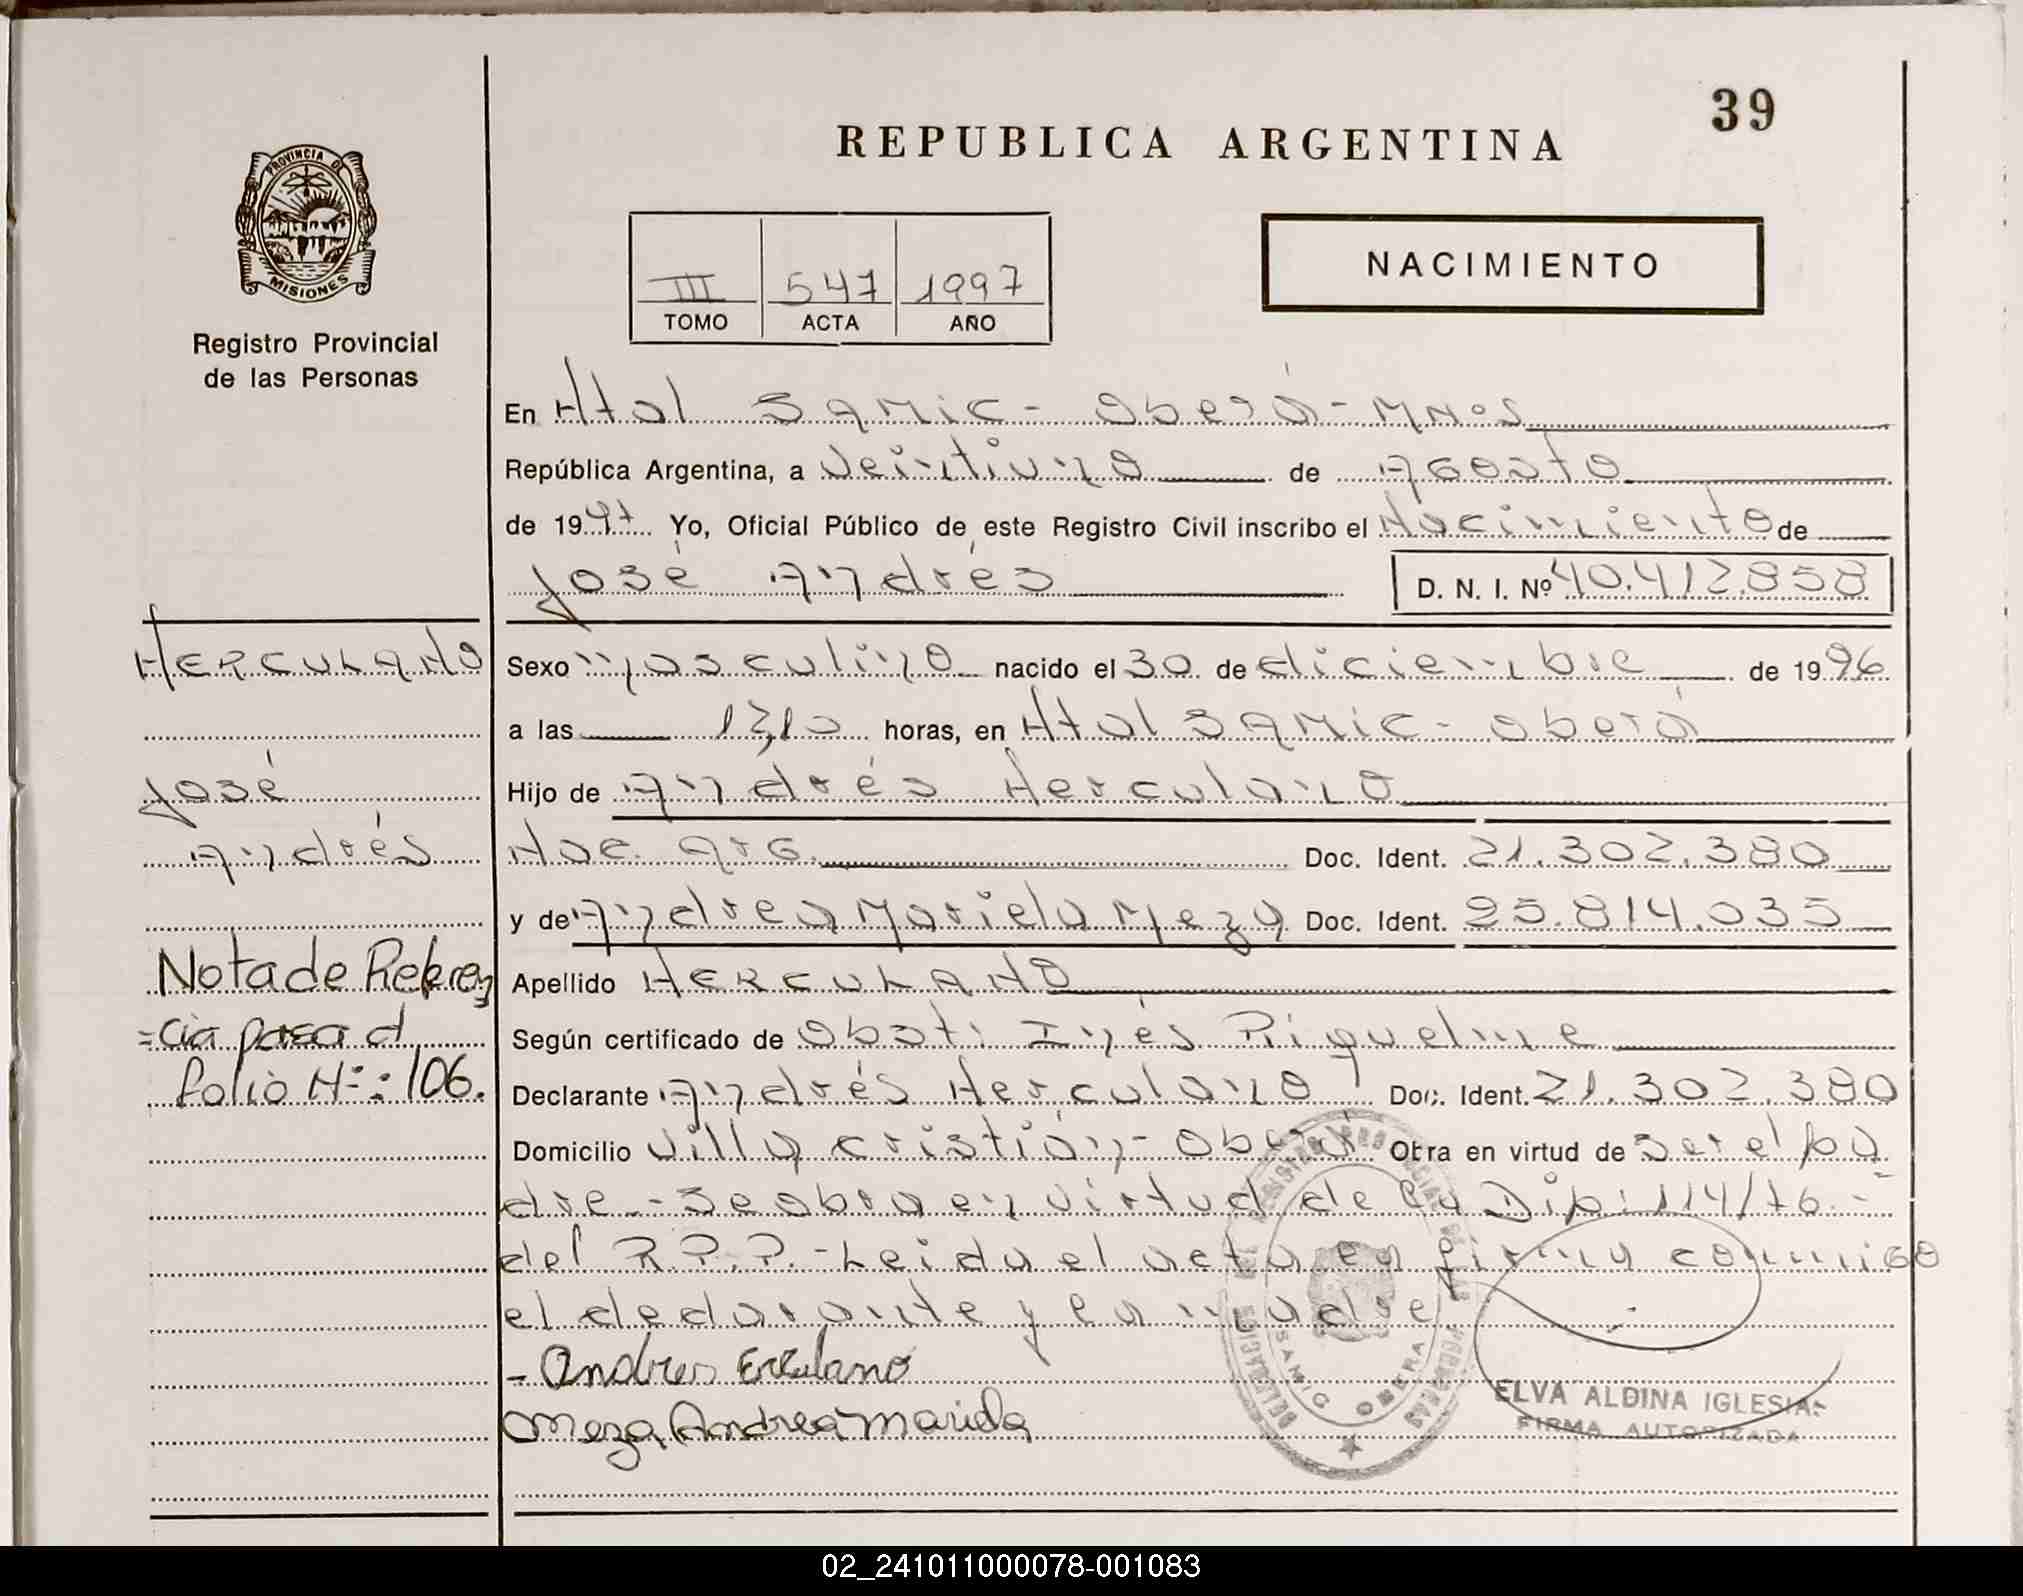 39
REPUBLICA ARGENTINA
PROVINCIA DE
MISIONES
Registro Provincial
de las Personas
III 547 1997
TOMO ACTA AÑO
NACIMIENTO
En Htal SAMIC - Oberá - MNes
República Argentina, a veintiuno de Agosto
de 1997 Yo, Oficial Público de este Registro Civil inscribo el Nacimiento de
José Andrés D. N. I. Nº 40.412.858
HERCULANO
José
Andrés
Nota de Referen
=cia pasa al
folio Nº: 106.
Sexo masculino nacido el 30 de diciembre de 1996
a las 13,10 horas, en Htal SAMIC - Oberá
Hijo de Andrés Herculano
Nac. Arg. Doc. Ident. 21.302.380
y de Andrea Mariela Meza Doc. Ident. 25.814.035
Apellido HERCULANO
Según certificado de Obst. Inés Riquelme
Declarante Andrés Herculano Doc. Ident. 21.302.380
Domicilio Villa Cristián - Oberá Obra en virtud de ser el pa
dre - Se obra en virtud de la Dip: 114/76 -
del R.P.P. - Leida el acta la firma conmigo
el declarante y la madre
- Andres Erculano
Meza Andrea Mariela
DELEGACION DEL REGISTRO PROVINCIAL DE LAS PERSONAS
SAMIC OBERA
ELVA ALDINA IGLESIAS
FIRMA AUTORIZADA
02_241011000078-001083